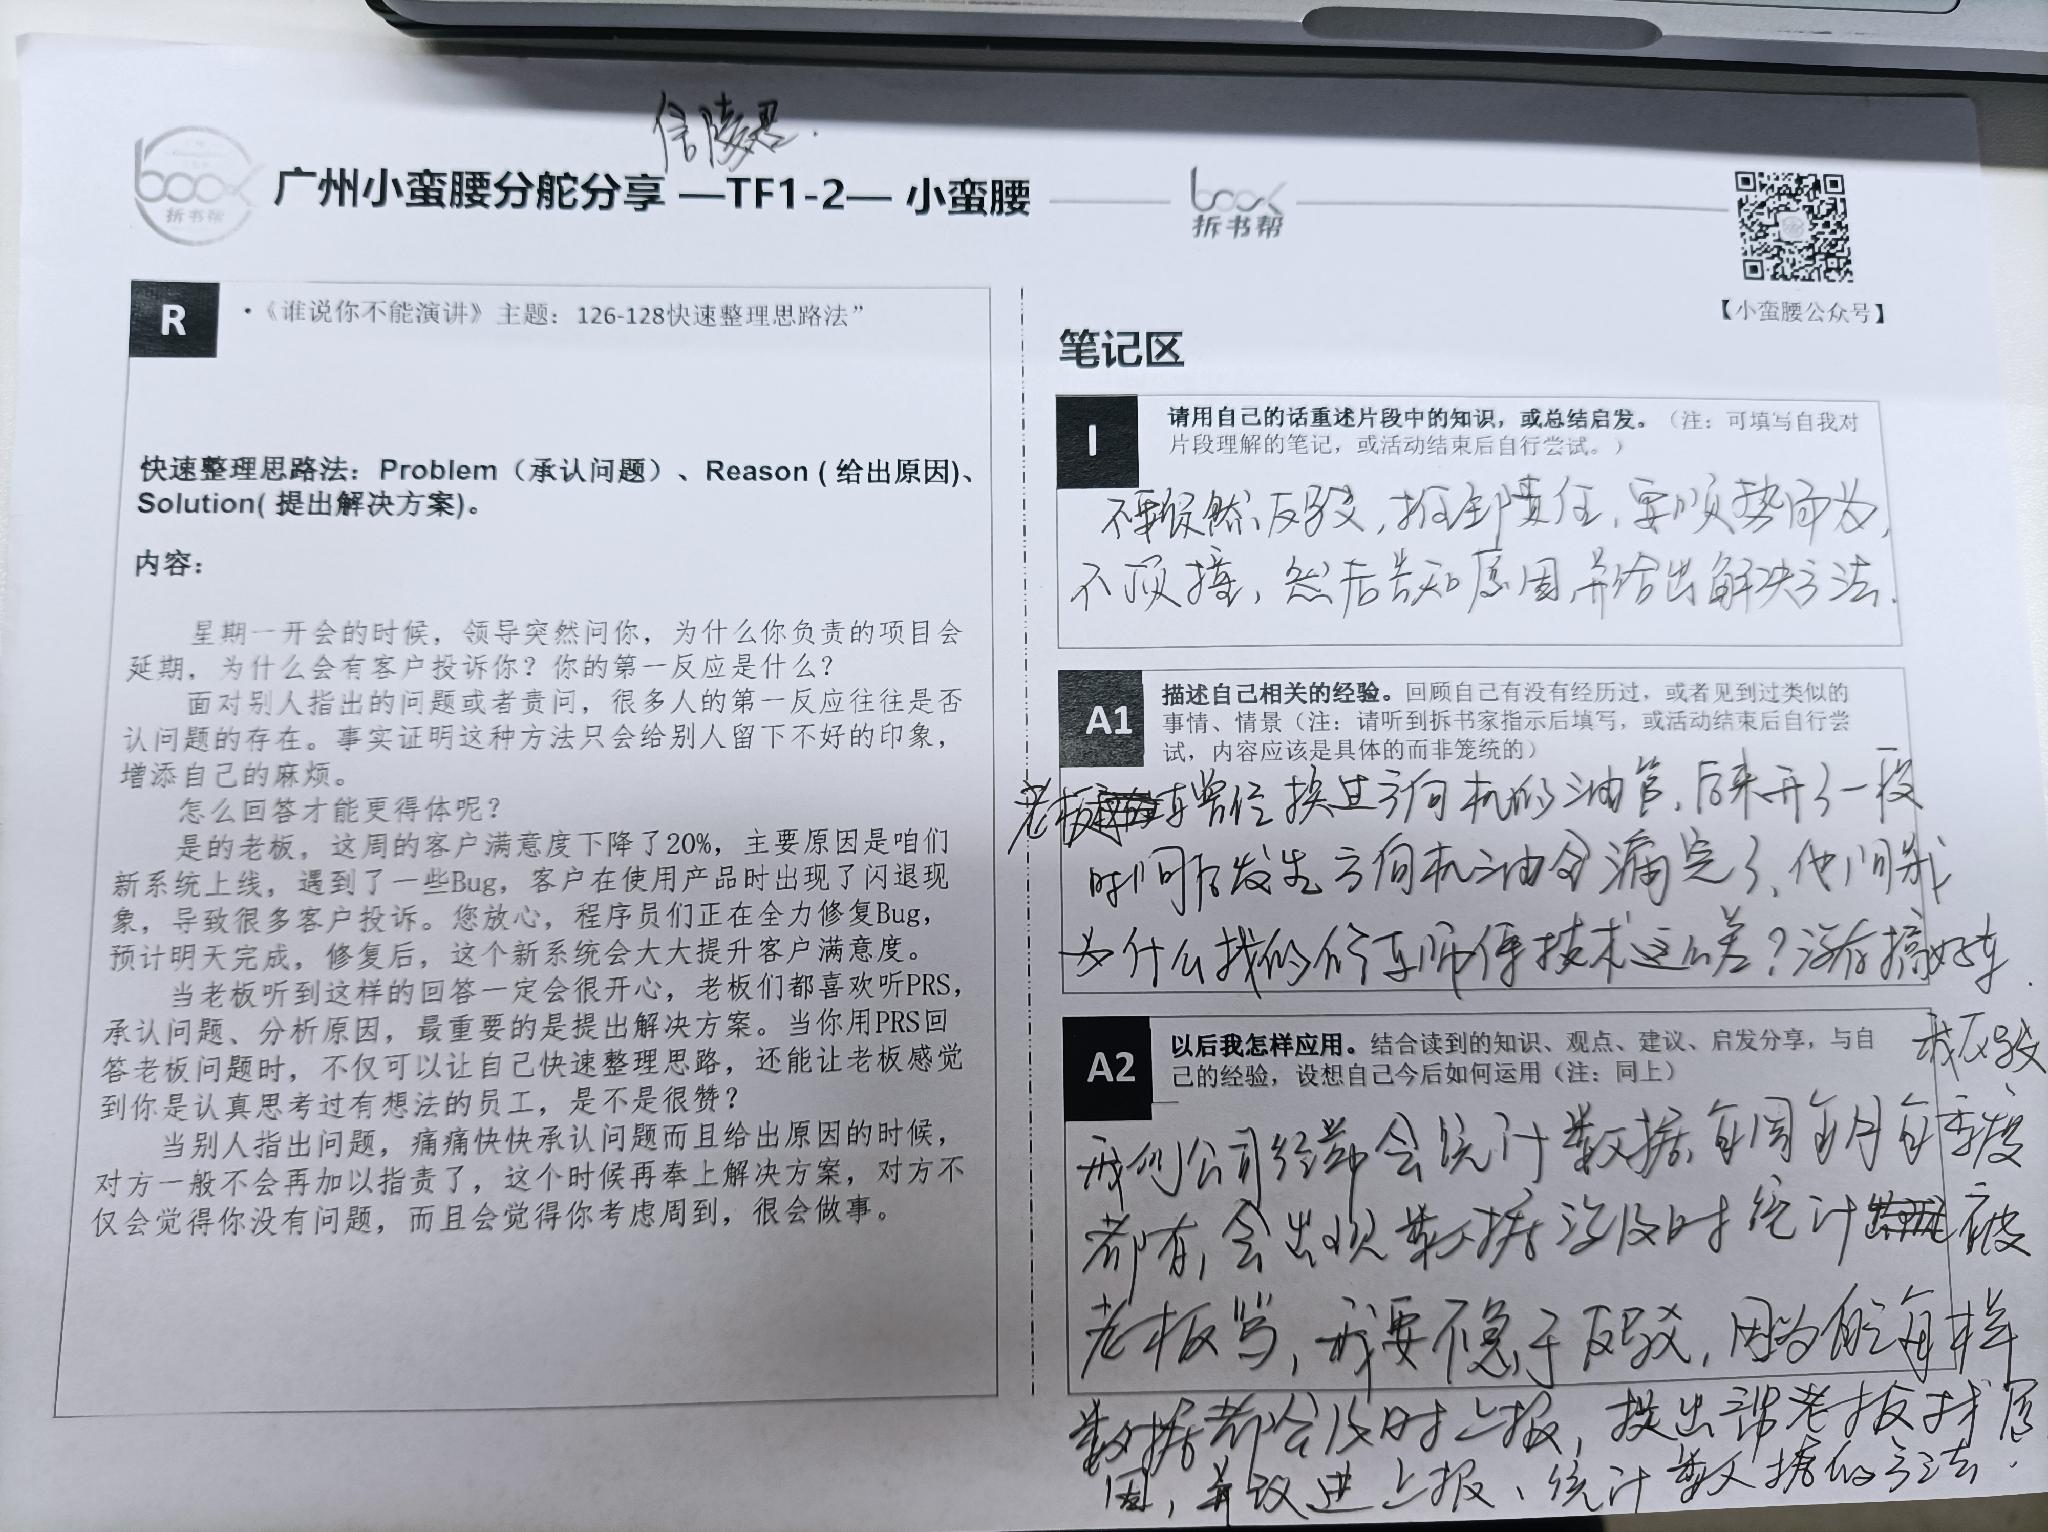 信陵君.
book
拆书帮
广州小蛮腰分舵分享 —TF1-2— 小蛮腰
book
拆书帮
【小蛮腰公众号】
R
·《谁说你不能演讲》主题：126-128快速整理思路法”
快速整理思路法：Problem（承认问题）、Reason（给出原因)、
Solution( 提出解决方案)。
内容：
星期一开会的时候，领导突然问你，为什么你负责的项目会
延期，为什么会有客户投诉你？你的第一反应是什么？
面对别人指出的问题或者责问，很多人的第一反应往往是否
认问题的存在。事实证明这种方法只会给别人留下不好的印象，
增添自己的麻烦。
怎么回答才能更得体呢？
是的老板，这周的客户满意度下降了20%，主要原因是咱们
新系统上线，遇到了一些Bug，客户在使用产品时出现了闪退现
象，导致很多客户投诉。您放心，程序员们正在全力修复Bug，
预计明天完成，修复后，这个新系统会大大提升客户满意度。
当老板听到这样的回答一定会很开心，老板们都喜欢听PRS，
承认问题、分析原因，最重要的是提出解决方案。当你用PRS回
答老板问题时，不仅可以让自己快速整理思路，还能让老板感觉
到你是认真思考过有想法的员工，是不是很赞？
当别人指出问题，痛痛快快承认问题而且给出原因的时候，
对方一般不会再加以指责了，这个时候再奉上解决方案，对方不
仅会觉得你没有问题，而且会觉得你考虑周到，很会做事。
笔记区
I
请用自己的话重述片段中的知识，或总结启发。（注：可填写自我对
片段理解的笔记，或活动结束后自行尝试。）
不要 然反驳，推卸责任，要顺势而为，
不顶撞，然后告知原因并给出解决方法.
A1
描述自己相关的经验。回顾自己有没有经历过，或者见到过类似的
事情、情景（注：请听到拆书家指示后填写，或活动结束后自行尝
试，内容应该是具体的而非笼统的）
老板 车曾经换过方向机的油管，后来开了一段
时间后发生方向机油全漏完了，他问我
为什么找的修车师傅技术这么差？没有搞好车.
我反驳
A2
以后我怎样应用。结合读到的知识、观点、建议、启发分享，与自
己的经验，设想自己今后如何运用（注：同上）
我们公司经常会统计数据，每周每月每季度
都有，会出现数据没及时统计 被
老板骂，我要不急于反驳，因为 每样
数据都会及时上报，提出帮老板找原
因，并改进上报、统计数据的方法.